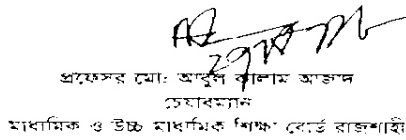 প্রফেসর মো: আবুল কালাম আজাদ
চেয়ারম্যান
মাধ্যমিক ও উচ্চ মাধ্যমিক শিক্ষা বোর্ড রাজশাহী